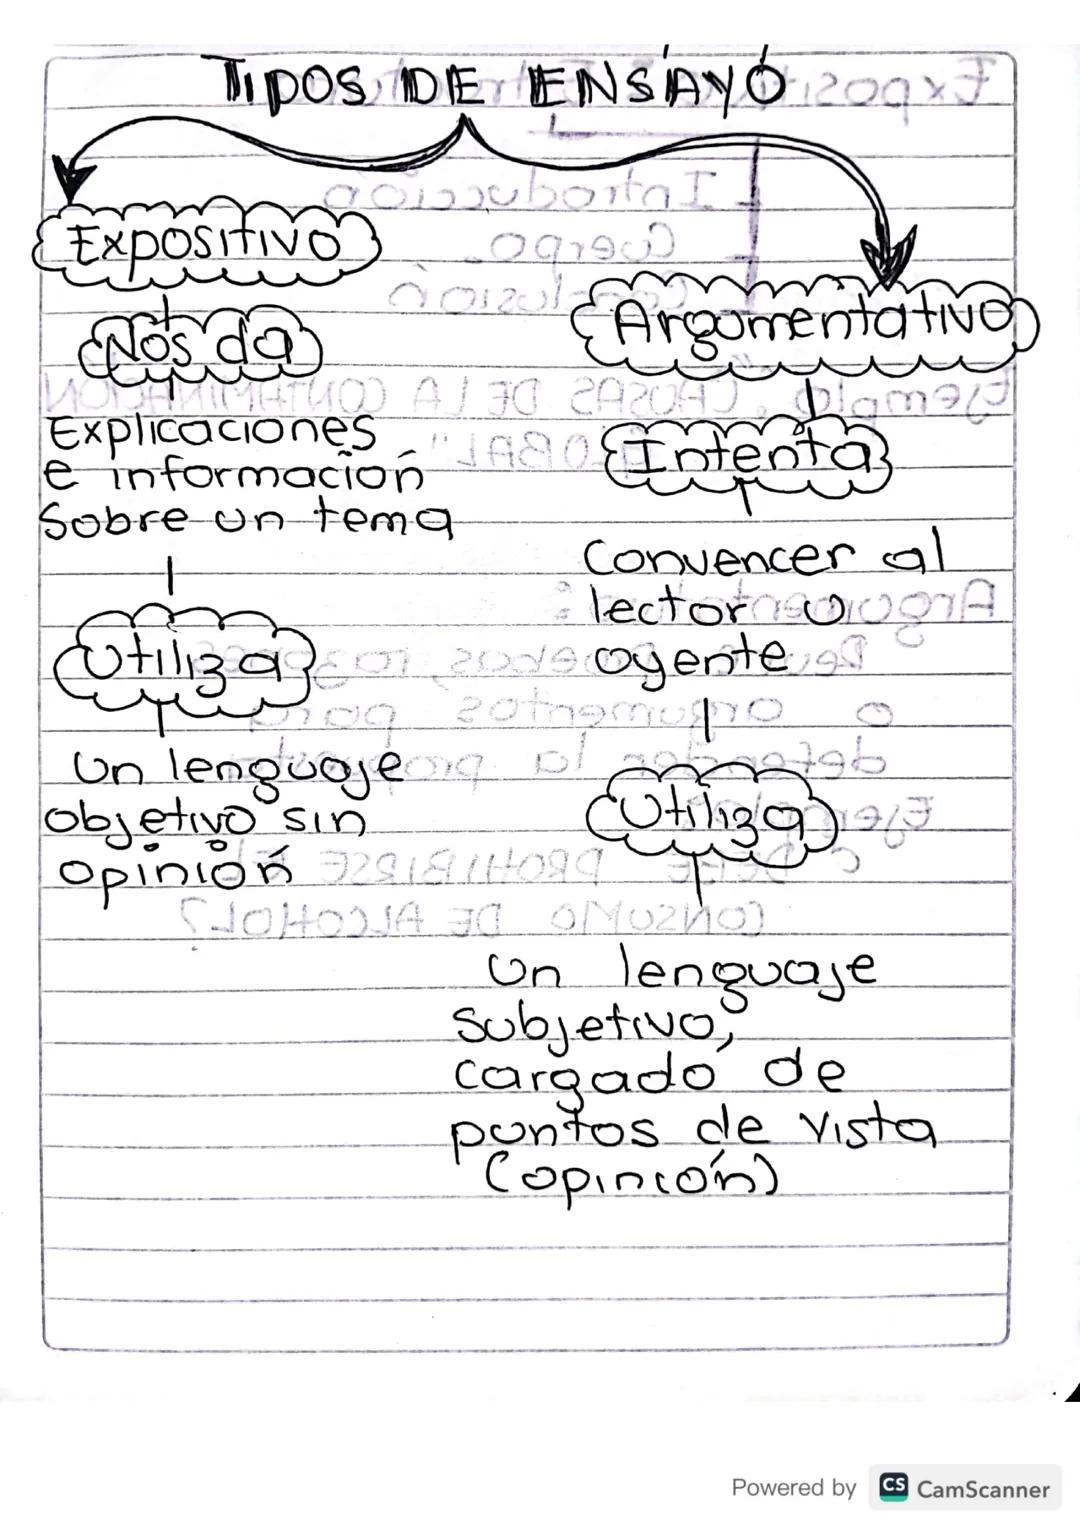 TIPOS DE ENSAYO
Expositivo
Nos da
Explicaciones
e información
Sobre un tema
Utiliza
Un lenguaje
objetivo sin
opinión
Argumentativo
Intenta
Convencer al
lector u
oyente
Utiliza
Un lenguaje
subjetivo,
cargado de
puntos de vista
(opinión)
Powered by CS CamScanner